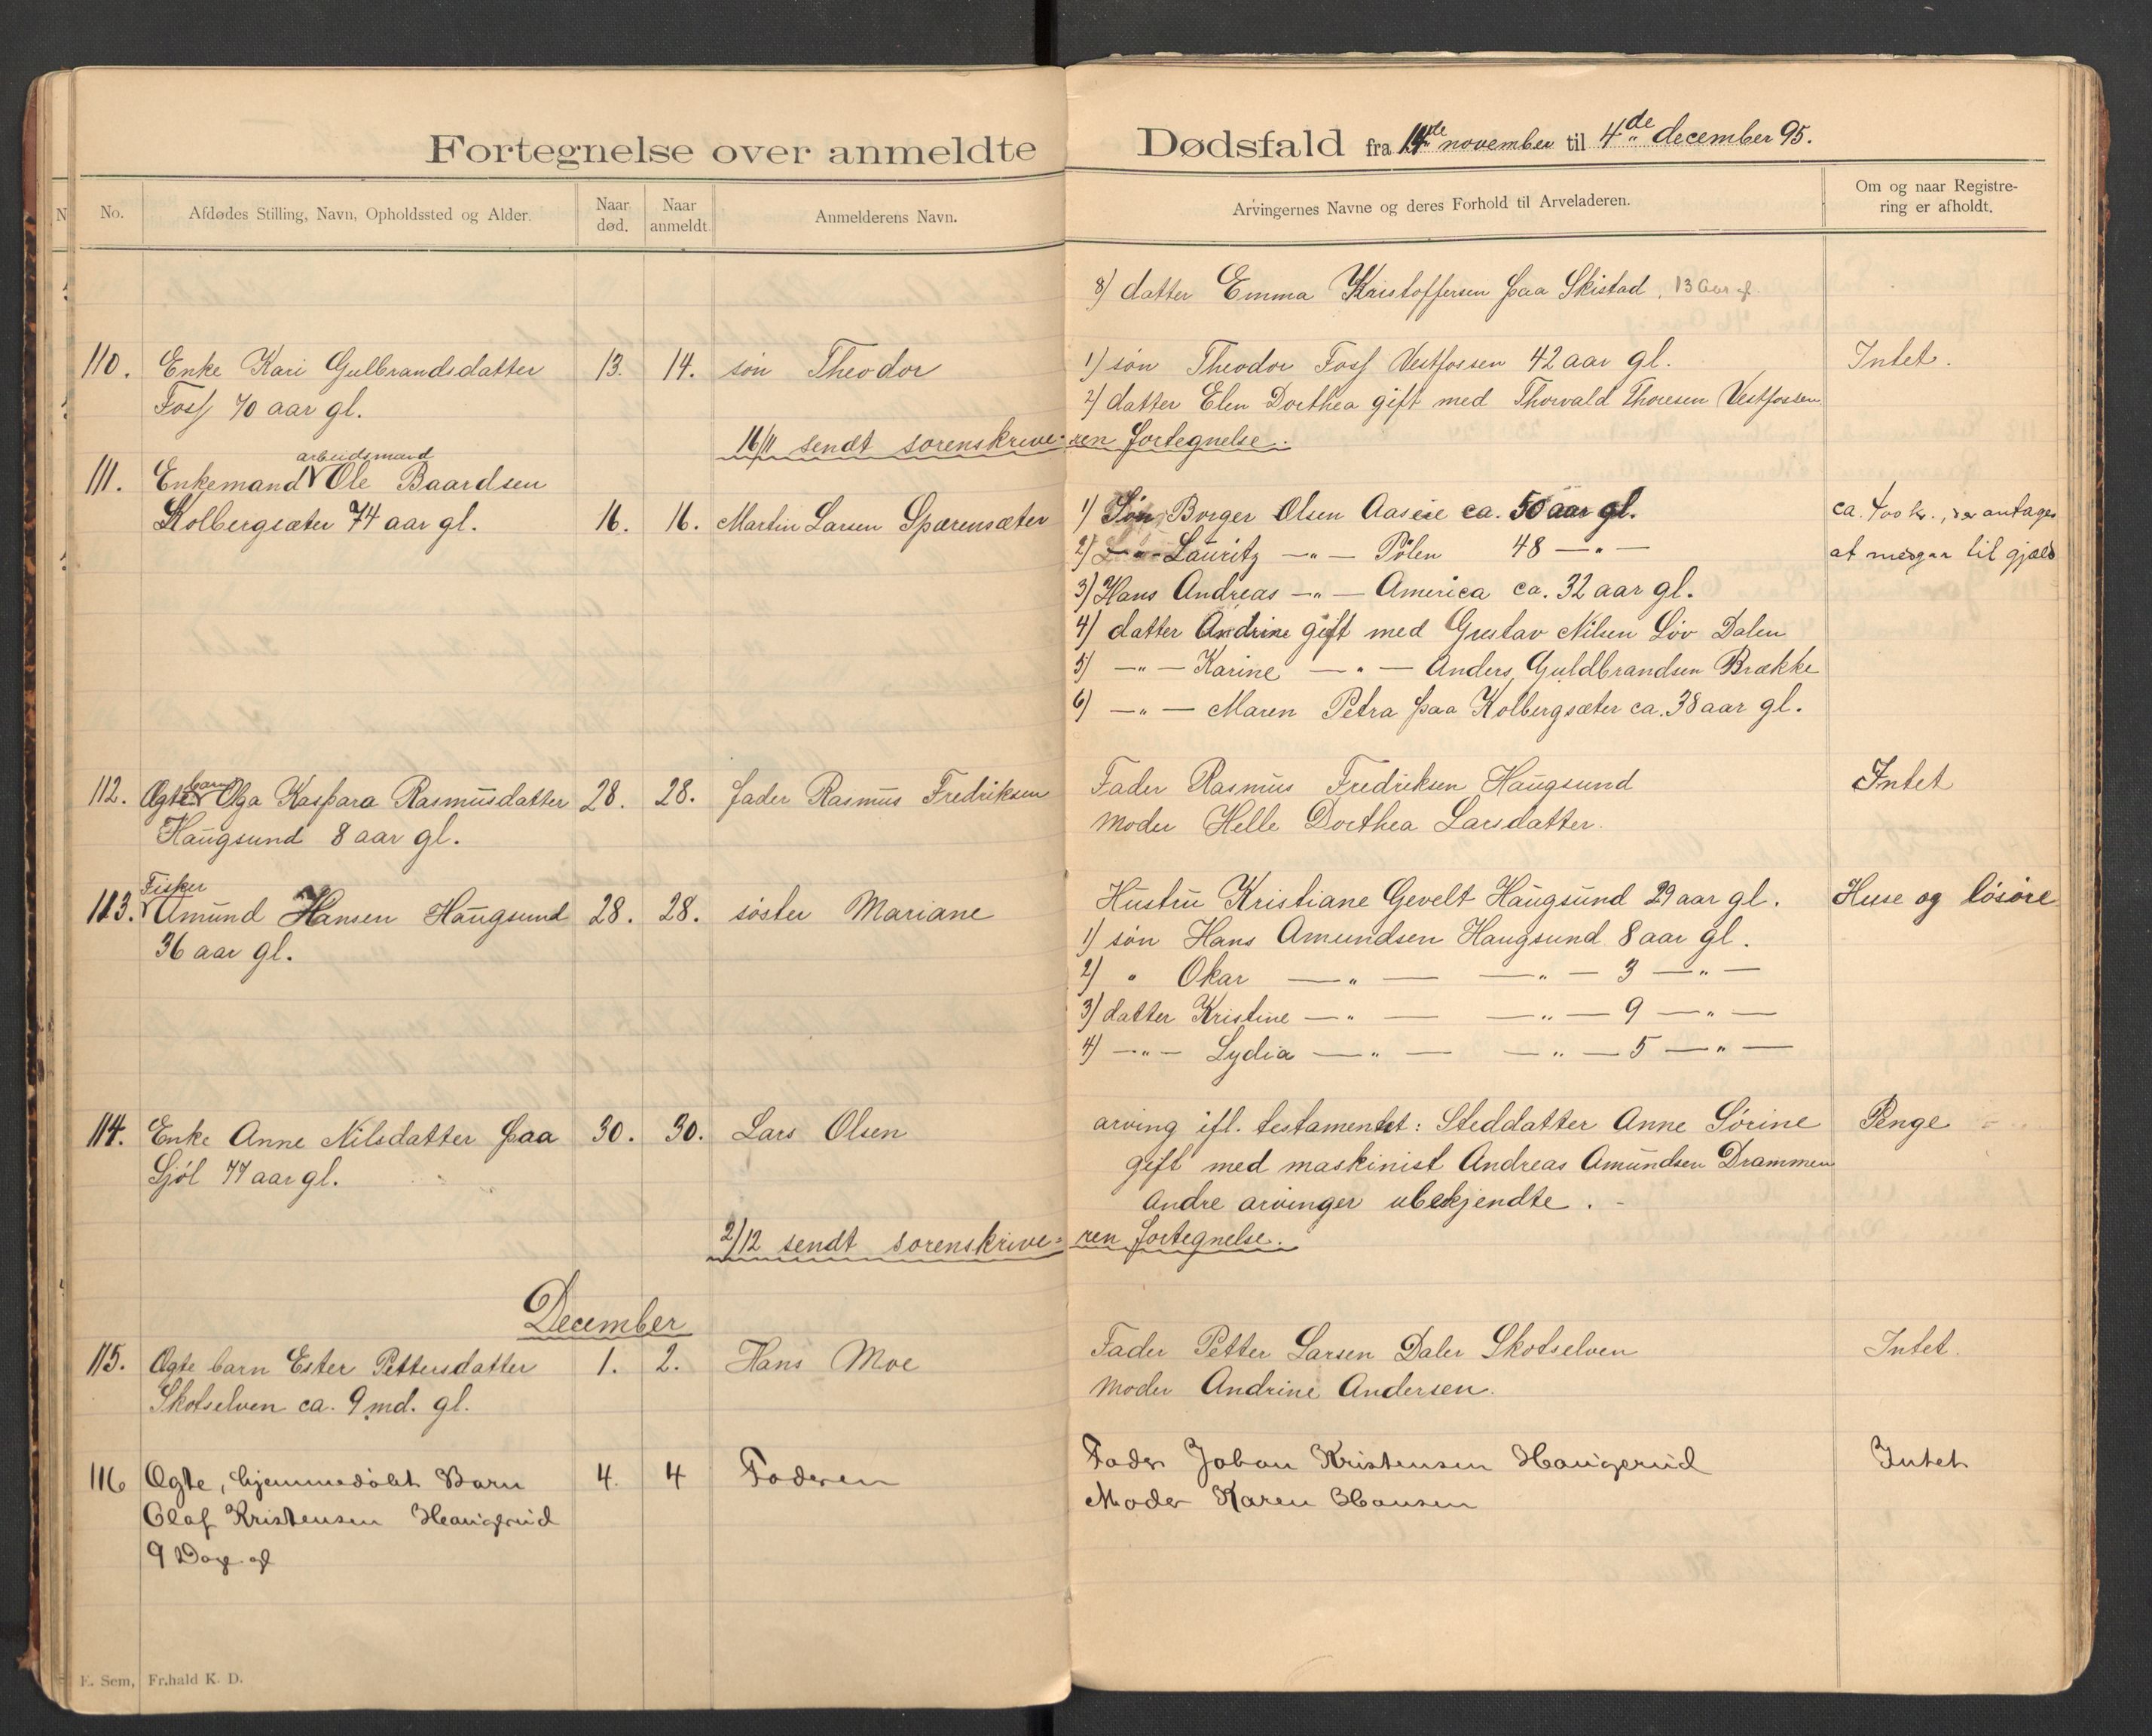 Fortegnelse over anmeldte Dødsfald fra 14de november til 4de december 95.
No. Afdødes Stilling, Navn, Opholdssted og Alder. Naar død. Naar anmeldt. Anmelderens Navn. Arvingernes Navne og deres Forhold til Arveladeren. Om og naar Registre-
ring er afholdt.
8) datter Emma Kristoffersen paa Skistad, 13 Aar gl.
110. Enke Kari Gulbrandsdatter 13. 14. søn Theodor 1) søn Theodor Foss Vestfossen 42 aar gl. Intet.
Foss 70 aar gl. 2) datter Elen Dorthea gift med Thorvald Thoresen Vestfossen
16/11 sendt sorenskrive-ren fortegnelse.
arbeidsmand
111. Enkemand Ole Baardsen
Kolbergsæter 74 aar gl. 16. 16. Martin Larsen Spærensæter 1) Søn Borger Olsen Aaseie ca. 50 aar gl. ca. 400 kr., der antages
2) —"— Lauritz —"— Pølen 48 —"— at medgaa til gjæld
3) Hans Andreas —"— America ca. 32 aar gl.
4) datter Andrine gift med Gustav Nilsen Løv Dalen
5) —"— Karine —"— Anders Guldbrandsen Brække
6) —"— Maren Petra paa Kolbergsæter ca. 38 aar gl.
barn
112. Ægte Olga Kaspara Rasmusdatter 28. 28. fader Rasmus Fredriksen Fader Rasmus Fredriksen Haugsund Intet
Haugsund 8 aar gl. Moder Helle Dorthea Larsdatter.
Fisker
113. Amund Hansen Haugsund 28. 28. søster Mariane Hustru Kristiane Gevelt Haugsund 29 aar gl. Huse og løsøre
36 aar gl. 1) søn Hans Amundsen Haugsund 8 aar gl.
2) " Okar —"— —"— 3 —"—
3) datter Kristine —"— —"— 9 —"—
4) —"— Lydia —"— —"— 5 —"—
114. Enke Anne Nilsdatter paa 30. 30. Lars Olsen arving ifl. testamentet: Steddatter Anne Sørine Penge
Sjøl 77 aar gl. gift med maskinist Andreas Amundsen Drammen
Andre arvinger ubekjendte.
2/12 sendt sorenskrive=ren fortegnelse.
December
115. Ægte barn Ester Pettersdatter 1. 2. Hans Moe Fader Petter Larsen Daler Skotselven Intet.
Skotselven ca. 9 md. gl. Moder Andrine Andersen.
116 Ægte, hjemmedøbt Barn 4. 4 Faderen Fader Johan Kristensen Haugerud Intet
Olaf Kristensen Haugerud Moder Karen Hansen
9 Dage gl
E. Sem, Fr.hald K. D.